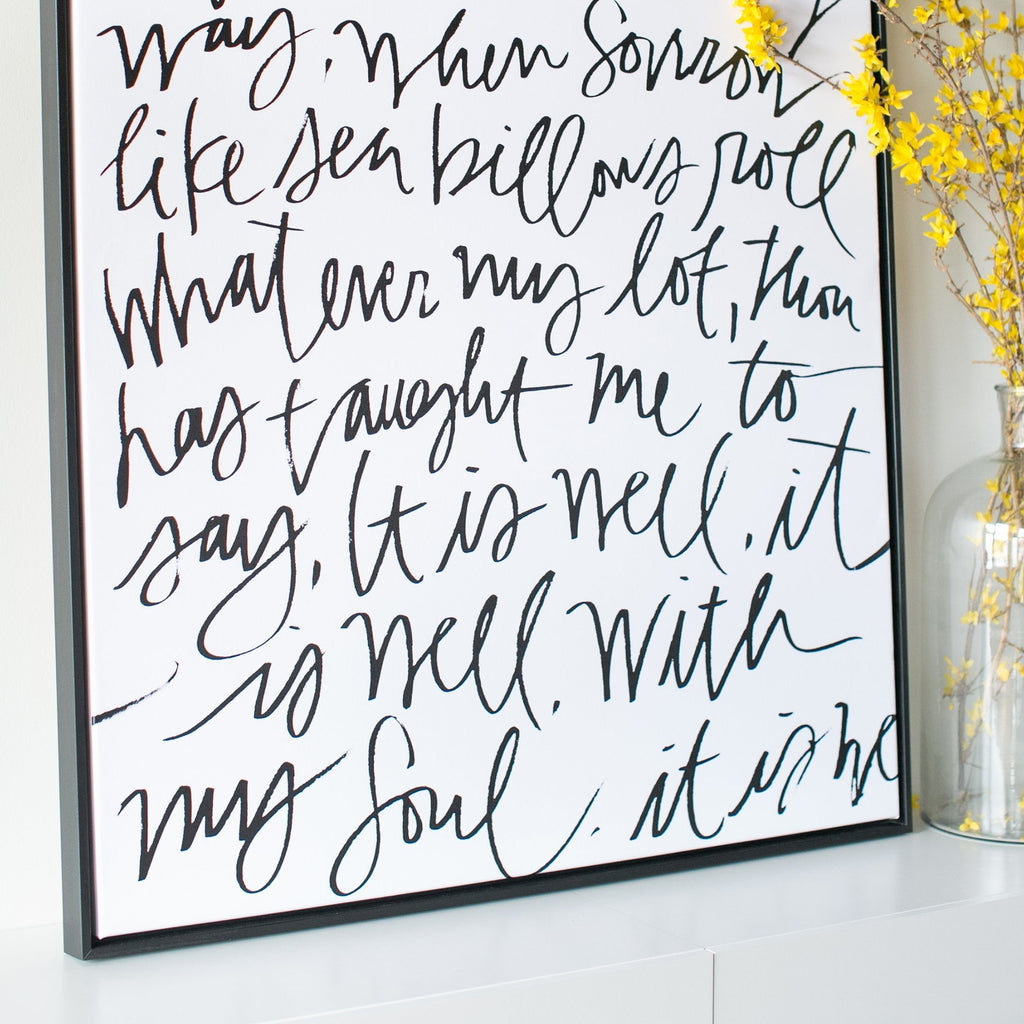 way, when sorrow
like sea billows roll
whatever my lot, thou
has taught me to
say, It is well, it
is well, with
my soul. it is we